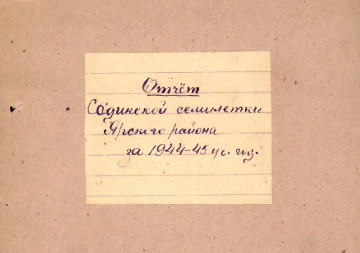 Отчёт
Сединской семилетки
Ярского района
за 1944-45 уч. год.